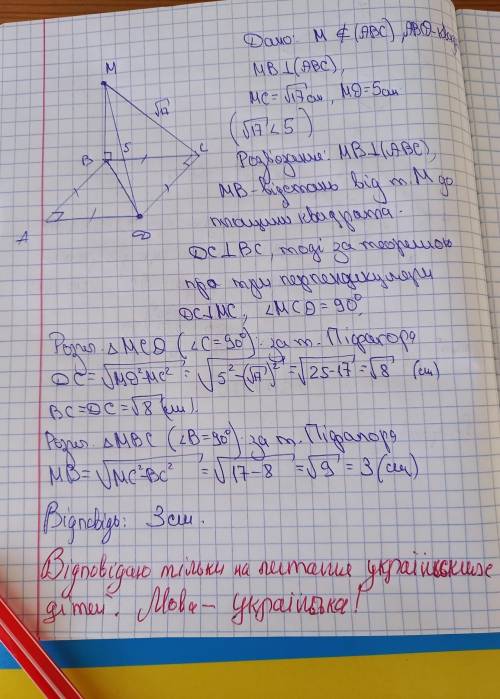 Дано: M ∉ (ABC), ABCD - квадр
MB ⊥ (ABC),
MC = √17 см, MD = 5 см
(√17 < 5)
Розв'язання: MB ⊥ (ABC),
MB - відстань від т. M до
площини квадрата.
DC ⊥ BC, тоді за теоремою
про три перпендикуляри
DC ⊥ MC, ∠MCD = 90°,
M
√17
B
5
C
A
D
Розгл. △MCD (∠C = 90°): за т. Піфагора
DC = √MD²-MC² = √5²-(√17)² = √25-17 = √8 (см)
BC = DC = √8 (см).
Розгл. △MBC (∠B = 90°): за т. Піфагора
MB = √MC²-BC² = √17-8 = √9 = 3 (см)
Відповідь: 3 см.
Відповідаю тільки на питання українських
дітей. Мова - українська!